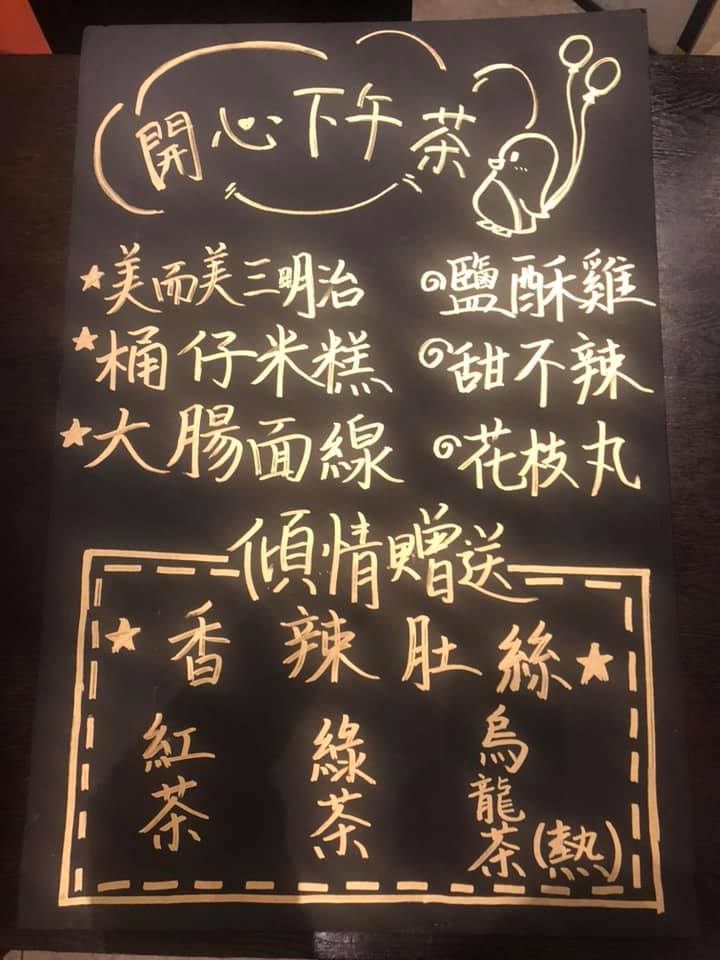 開心下午茶
美而美三明治 鹽酥雞
桶仔米糕 甜不辣
大腸面線 花枝丸
傾情贈送
香辣肚絲
紅茶 綠茶 烏龍茶(熱)